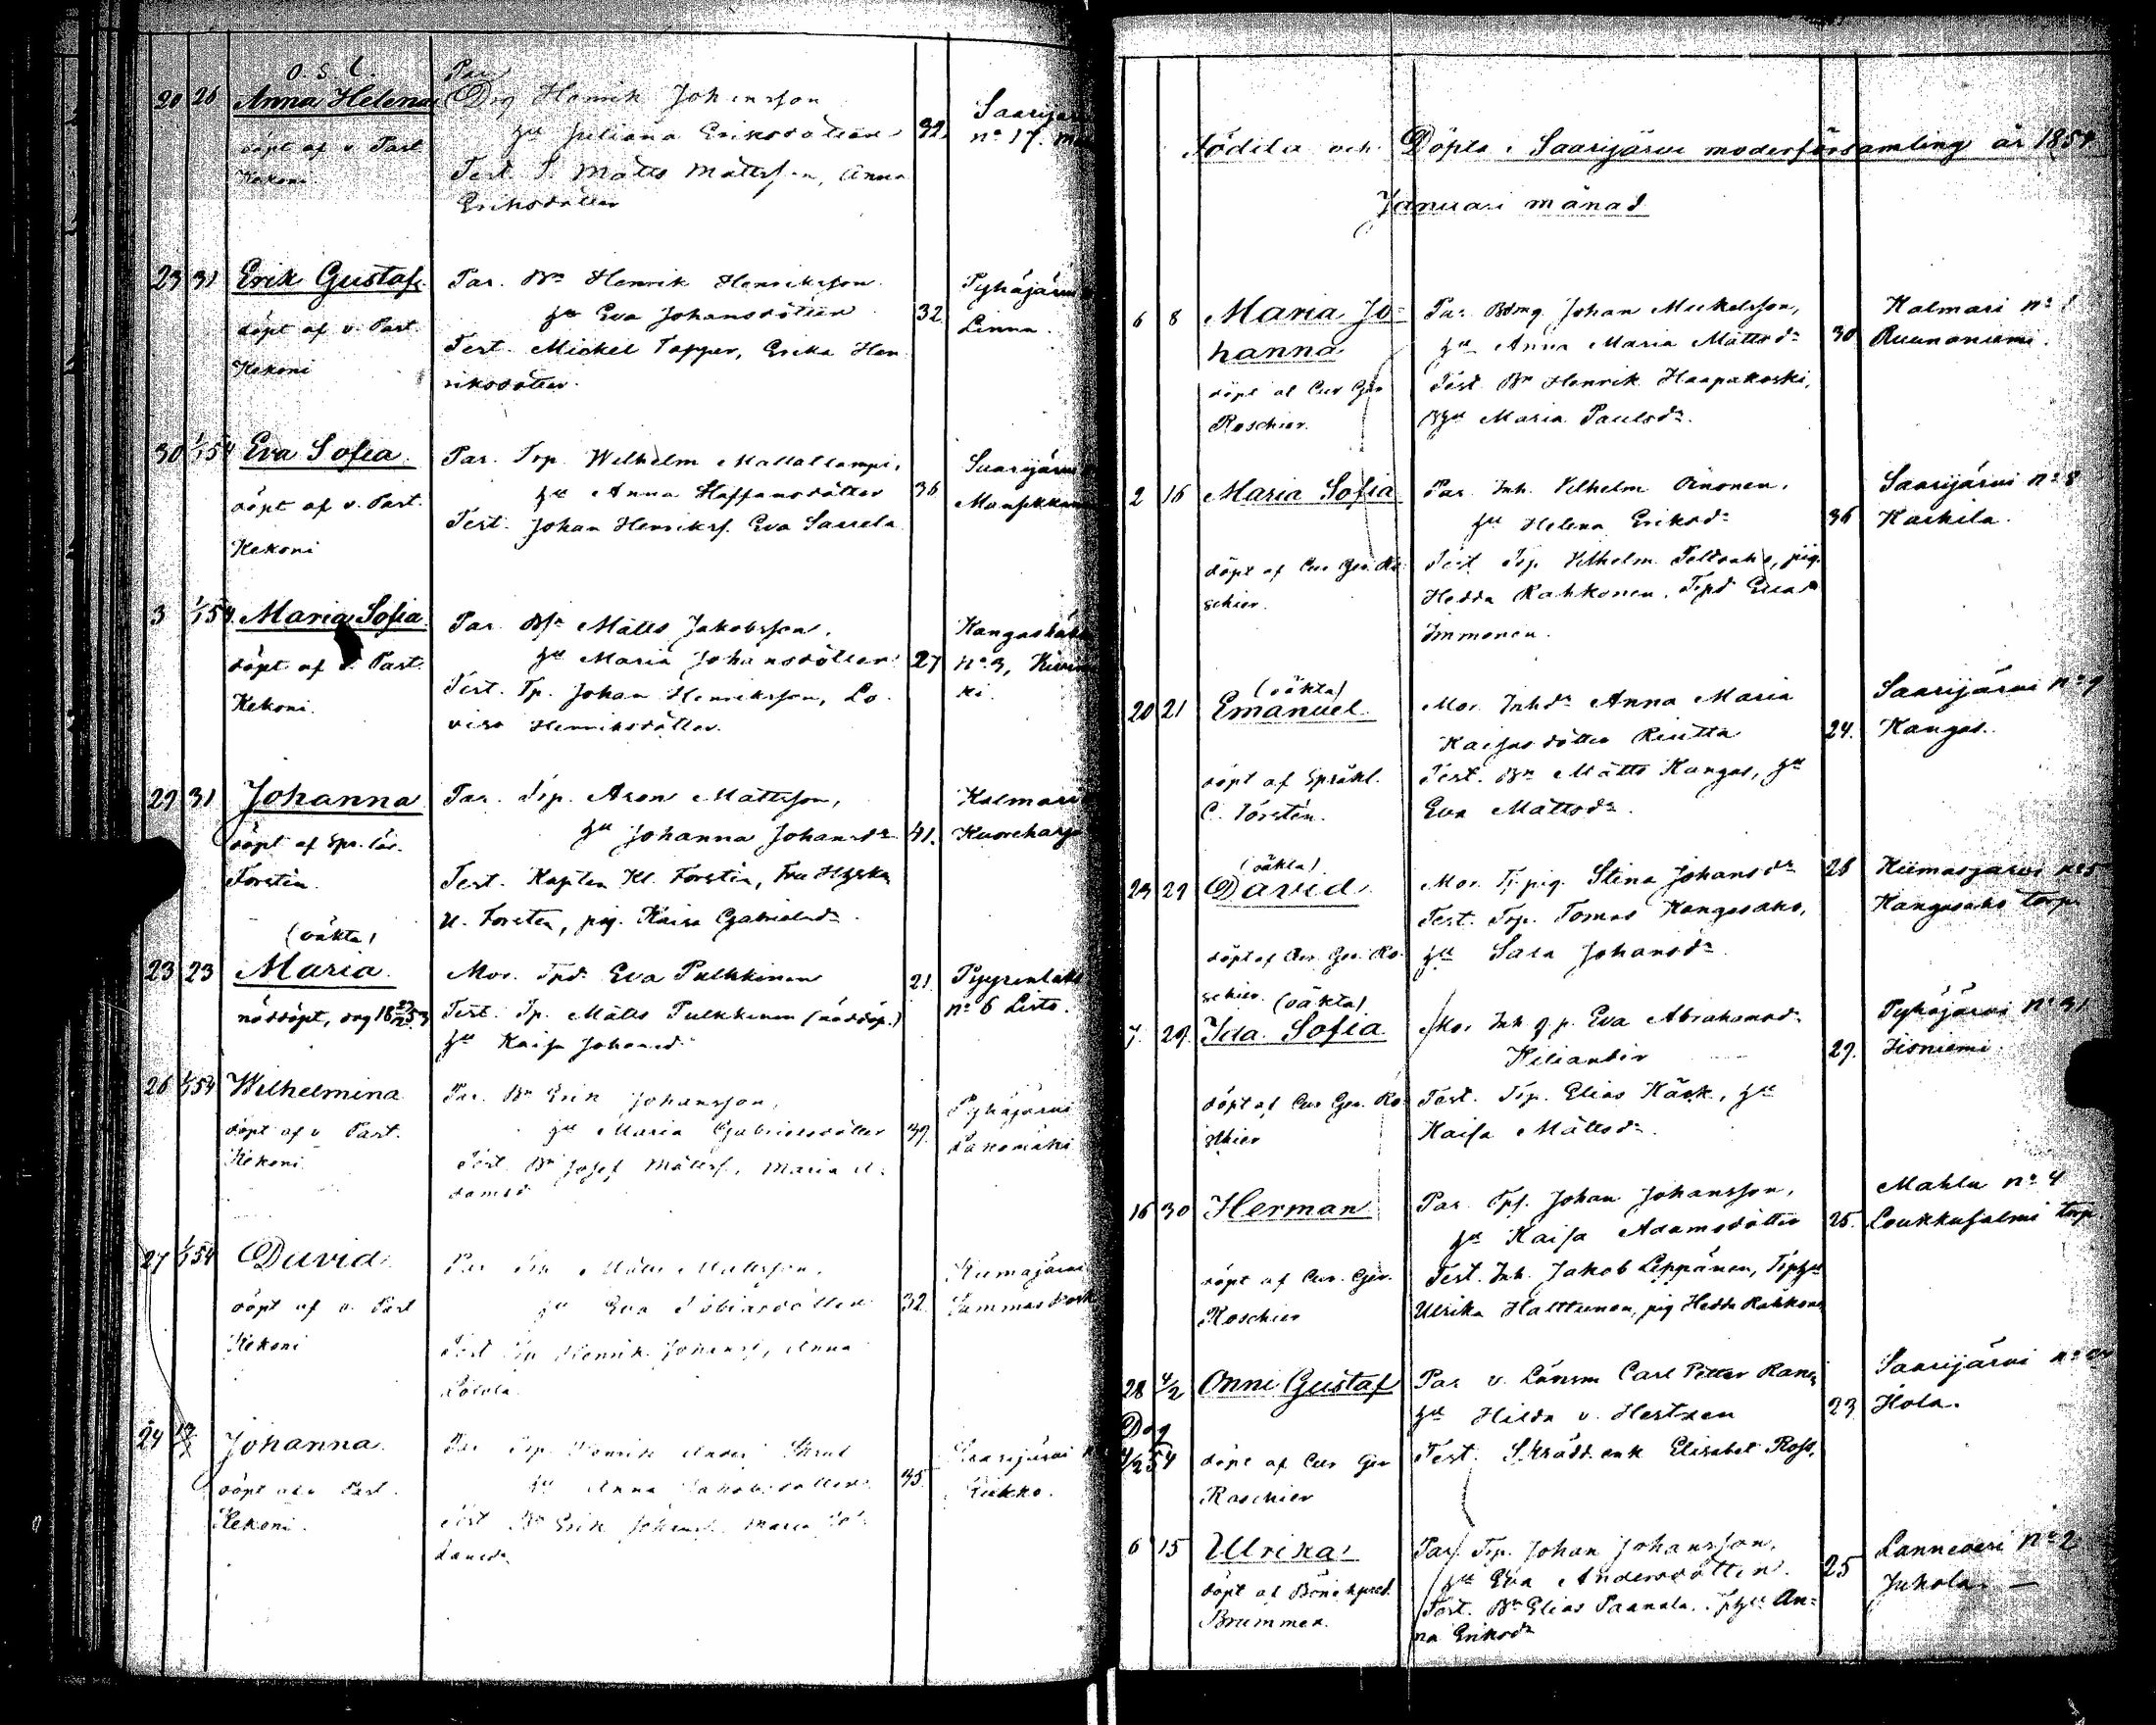 o. s. l.
20 26 Anna Helena
döpt af v. Past
Kekoni
Par
Drg Henrik Johansson
hu Juliana Eriksdotter 32
Test. S. Matts Mattsson, Anna
Eriksdotter
Saarijär
no 17.
23 31 Erik Gustaf
döpt af v. Past.
Kekoni
Par. Bn Henrik Henriksson
hu Eva Johansdotter 32
Test. Mickel Topper, Erika Hen
riksdotter.
Pyhäjärvi
Linna.
30 1/1 54 Eva Sofia.
döpt af v. Past.
Kekoni
Par. Trp. Wilhelm Mallatlampi,
hu Anna Staffansdotter 36
Test. Johan Henrikss. Eva Saarela
Saarijärvi
3 1/1 54. Maria Sofia.
döpt af v. Past.
Kekoni.
Par. Bn Matts Jakobsson,
hu Maria Johansdotter 27
Test. Tp. Johan Henriksson, Lo
visa Henriksdotter.
Kangashäk
no 3, Kivim
ki.
29 31 Johanna
döpt af Spr. lär.
Forstén.
Par. Trp. Aron Mattsson,
hu Johanna Johansdr 41.
Test. Kapten Kl. Forstén, Fru
U. Forstén, pig. Kaisa Gabrielsdr.
Kalmari
Kuoreharju
(oäkta)
23 23 Maria.
nöddöpt,
Mor. Tpdr Eva Pulkkinen 21.
Test. Tp. Matts Pulkkinen (nöddöp.)
hu Kaisa Johansdr
Pyyrinlaht
no 6 Listo.
26 1/1 54 Wilhelmina
döpt af v. Past.
Kekoni
Par. Bn Erik Johansson,
hu Maria Gabrielsdotter 39.
Test. Bn Josef Mattss., Maria A-
damsd
Pyhäjärvi
Lakomäki
27 1/1 54 David
döpt af v. Past
Kekoni
Par Matts Mattsson.
hu Eva Tobiasdotter 32.
Test Henrik Johanss, Anna
Kiimajärvi
24 Johanna
döpt af v Past.
Kekoni.
Par Trp. Henrik
hu Anna Jakobsdotter 45.
Test Bn Erik Johanss. Maria
Saarijärvi
Födda och Döpta i Saarijärvi moderförsamling år 1854.
Januari månad
6 8 Maria Jo-
hanna
döpt af Cur Geo
Roschier.
Par. Bdmg Johan Mickelsson,
hu Anna Maria Mattsdr 30
Test. Bn Henrik Haapakoski,
Bhu Maria Paulsdr.
Kalmari no 1
Ruunaniemi.
2 16 Maria Sofia
döpt af Cur Geo. Ro-
schier.
Par. Inh. Vilhelm Oinonen,
hu Helena Eriksdr 36
Test. Trp. Vilhelm Peltoaho, pig.
Hedda Rahkonen, Tpd Eva
Immonen.
Saarijärvi no 8
Kaskela.
(oäkta)
20 21 Emanuel.
döpt af Språkl.
C. Forstén.
Mor. Inhdr Anna Maria
Kaisasdotter Riutta 24.
Test. Bn Matts Kangas, hu
Eva Mattsdr.
Saarijärvi no 9
Kangas.
(oäkta)
23 29 David
döpt af Cur. Geo. Ro-
schier.
Mor. Tp pig. Stina Johansdr 26
Test. Trp. Tomas Kangasaho,
hu Sara Johansdr.
Kiimasjärvi no 5
Kangasaho torp.
(oäkta)
7. 29. Ida Sofia
döpt af Cur Geo. Ro-
schier
Mor Inh. q. p. Eva Abrahamsdr
Kiliander 29.
Test. Trp. Elias Käck, hu
Kaisa Mattsdr.
Pyhäjärvi no 31
Iisoniemi.
16 30 Herman
döpt af Cur. Geo.
Roschier
Par. Tps. Johan Johansson,
hu Kaisa Adamsdotter 25.
Test. Inh. Jakob Leppänen, Tphu
Ulrika Halttunen, pig Hedda Rahkonen
Mahlu no 4
Loukkusalmi torp
28 4/2 Onni Gustaf
Dog
4/2 54 döpt af Cur Geo
Roschier
Par v. Länsm Carl Petter
hu Hilda v. Hertzen 23
Test. Skrädd. enk Elisabet Ross.
Saarijärvi
Hola.
6 15 Ulrika
döpt af Bönehpred.
Brummer.
Par. Trp. Johan Johansson,
hu Eva Andersdotter. 25
Test. Bn Elias Paanala. Tphu An-
na Eriksdr
Lannevesi no 2
Juhola. —